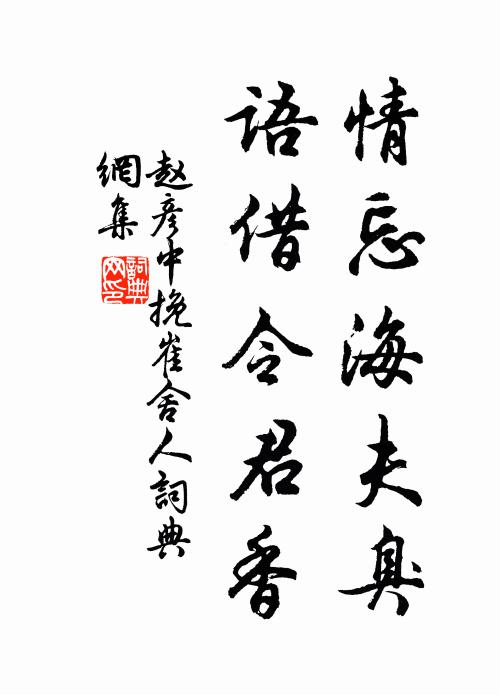 情忘海夫臭
语借令君香
赵彦中挽崔舍人詞典
網集
詞典
网印